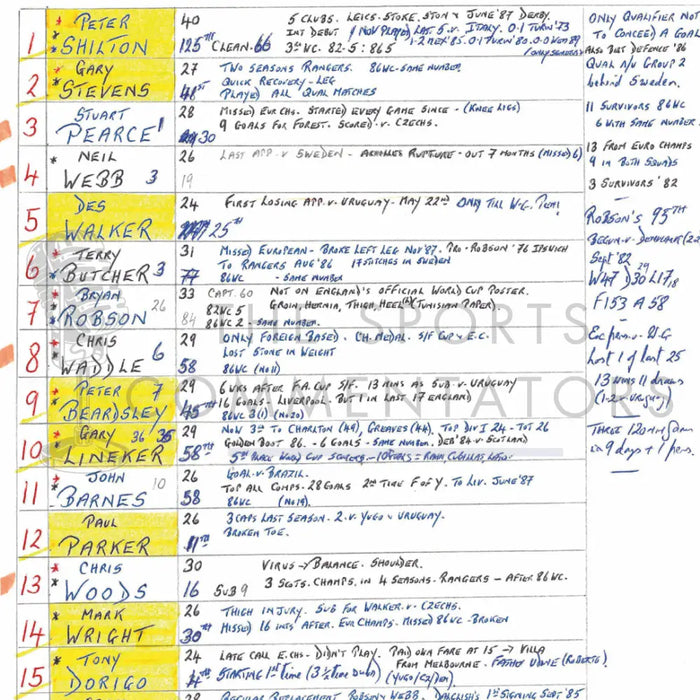 1 PETER SHILTON
40 5 CLUBS. LEICS. STOKE. STON & JUNE '87 DERBY.
125TH CLEAN. 66 3RD WC. 82-5 : 86 5
2 GARY STEVENS
27 TWO SEASONS RANGERS. 86WC - SAME NUMBER
QUICK RECOVERY - LEG
PLAYED ALL QUAL MATCHES
3 STUART PEARCE 1
28 MISSED EUR CHS. STARTED EVERY GAME SINCE - (KNEE LIGS)
30 9 GOALS FOR FOREST. SCORED. V. CZECHS.
4 NEIL WEBB 3
26 LAST APP. V SWEDEN - ACHILLES RUPTURE - OUT 7 MONTHS (MISSED 6)
19
5 DES WALKER
24 FIRST LOSING APP. V. URUGUAY - MAY 22ND
25TH
6 TERRY BUTCHER 3
31 MISSED EUROPEAN - BROKE LEFT LEG NOV '87. PRO - ROBSON '76 IPSWICH
TO RANGERS AUG '86 17 STITCHES IN SWEDEN
77 86WC - SAME NUMBER
7 BRYAN ROBSON 26
33 CAPT. 60 NOT ON ENGLAND'S OFFICIAL WORLD CUP POSTER.
84 82WC 5 GROIN, HERNIA, THIGH, HEEL (TUNISIAN PAPER).
86WC 2 - SAME NUMBER.
8 CHRIS WADDLE 6
29 ONLY FOREIGN BASED. CH. MEDAL. S/F CUP & E.C.
LOST STONE IN WEIGHT
58 86WC (NO 11)
9 PETER BEARDSLEY 7
29 6 WKS AFTER F.A. CUP S/F. 13 MINS AS SUB. V. URUGUAY
16 GOALS - LIVERPOOL - BUT 1 IN LAST 17 ENGLAND)
45TH 86WC 3(1) (NO 20)
10 GARY LINEKER 36 35
29 NOW 3RD TO CHARLTON (49), GREAVES (44), TOP DIV 1 24 - TOT 26
58TH GOLDEN BOOT 86. - 6 GOALS - SAME NUMBER. DEB '84 V. SCOTLAND
11 JOHN BARNES 10
26 GOAL V BRAZIL.
TOP ALL COMPS. 28 GOALS 2ND TIME F OF Y. TO LIV. JUNE '87
58 86WC (NO 19)
12 PAUL PARKER
26 3 CAPS LAST SEASON. 2. V. YUGO & URUGUAY.
11TH BROKEN TOE.
13 CHRIS WOODS
30 VIRUS → BALANCE. SHOULDER.
16 SUB 9 3 SCOTS. CHAMPS. IN 4 SEASONS. RANGERS - AFTER 86WC.
14 MARK WRIGHT
26 THIGH INJURY. SUB FOR WALKER. V. CZECHS.
30TH MISSED 16 INTS AFTER. EUR CHAMPS. MISSED 86WC - BROKEN
15 TONY DORIGO
24 LATE CALL E.CHS - DIDN'T PLAY. PAID OWN FARE AT 15 → VILLA
FROM MELBOURNE - FATHER UDINE (ROBERTO)
STARTING 1ST TIME
REGULAR REPLACEMENT ROBSON & WEBB. DALGLISH'S 1ST SIGNING SEPT '85
ONLY QUALIFIER NOT
TO CONCEDE A GOAL
ALSO BEST DEFENCE '86
QUAL R/U GROUP 2
behind Sweden.
11 SURVIVORS 86WC
6 WITH SAME NUMBER
13 FROM EURO CHAMPS
9 IN BOTH SQUADS
3 SURVIVORS '82
ROBSON'S 95TH
Sept '82
W47 D30 L17
F153 A58
Lost 1 of last 25
13 wins 11 draws
(1-2 v Uruguay)
THREE 120 mins
in 9 days + 1 pens.
THE SPORTS
COMMENTATORS